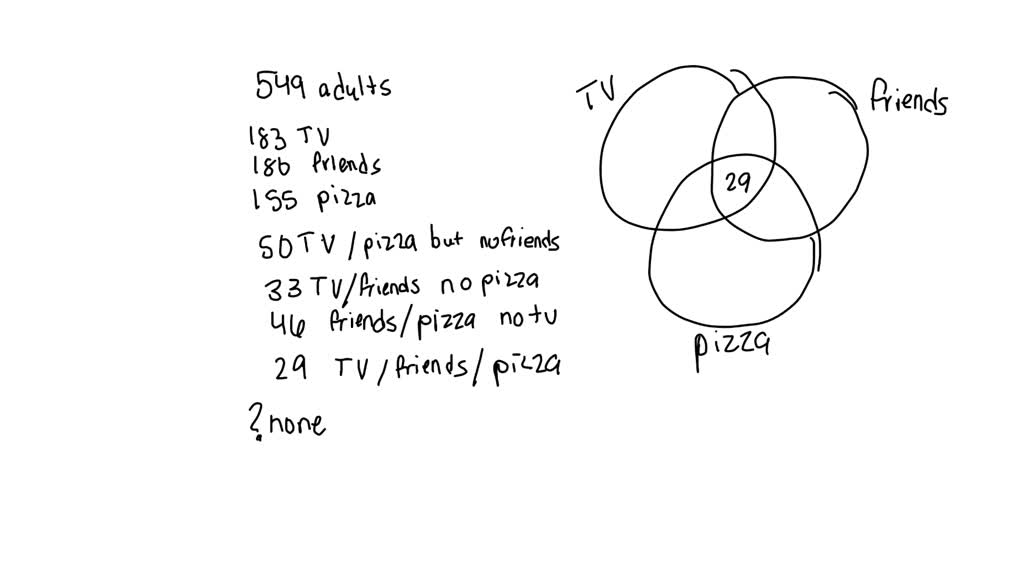 549 adults
183 TV
186 friends
155 pizza
50 TV/pizza but no friends
33 TV/friends no pizza
46 friends/pizza no tv
29 TV/friends/pizza
? none
TV
friends
29
pizza